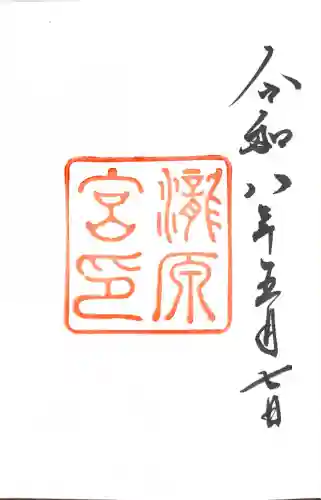 令和八年五月七日
瀧原
宮印